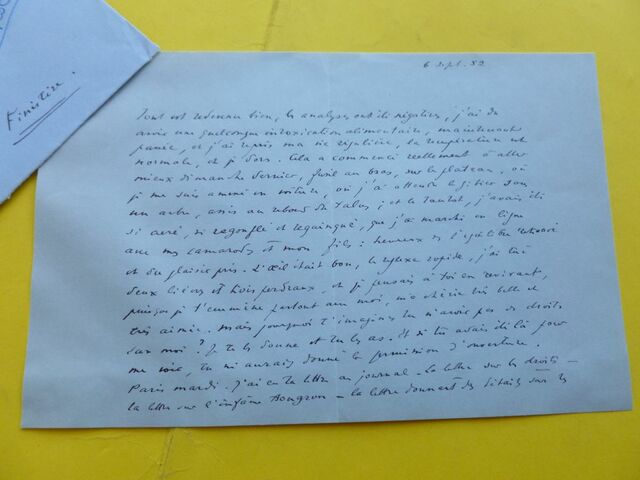 Finistère.
6 Sept. 52
Tout est redevenu bien, les analyses ont été négatives, j'ai dû
avoir une quelconque intoxication alimentaire, maintenant
passée, et j'ai repris ma vie régulière, la température est
normale, et je dors. Cela a commencé réellement à aller
mieux dimanche dernier, fusil au bras, sur le plateau, où
je me suis amené en voiture, où j'ai attendu le gibier sous
un arbre, assis au rebord du talus ; et le lundi, j'avais été
si aéré, si regonflé et requinqué, que j'ai marché en ligne
avec mes camarades et mon fils : heureux de l'équilibre retrouvé
et du plaisir pris. L'œil était bon, le réflexe rapide, j'ai tué
deux lièvres et trois perdreaux, et je pensais à toi en revivant,
puisque je t'emmène partout avec moi, ma chérie très belle et
très aimée. Mais pourquoi t'imagines tu n'avoir pas de droits
sur moi ? Je te les donne et tu les as. Et si tu avais été là pour
me voir, tu m'aurais donné la permission d'ouverture.
Paris mardi. J'ai eu ta lettre au journal - la lettre sur les droits -
la lettre sur l'infâme - la lettre donnant des détails sur les